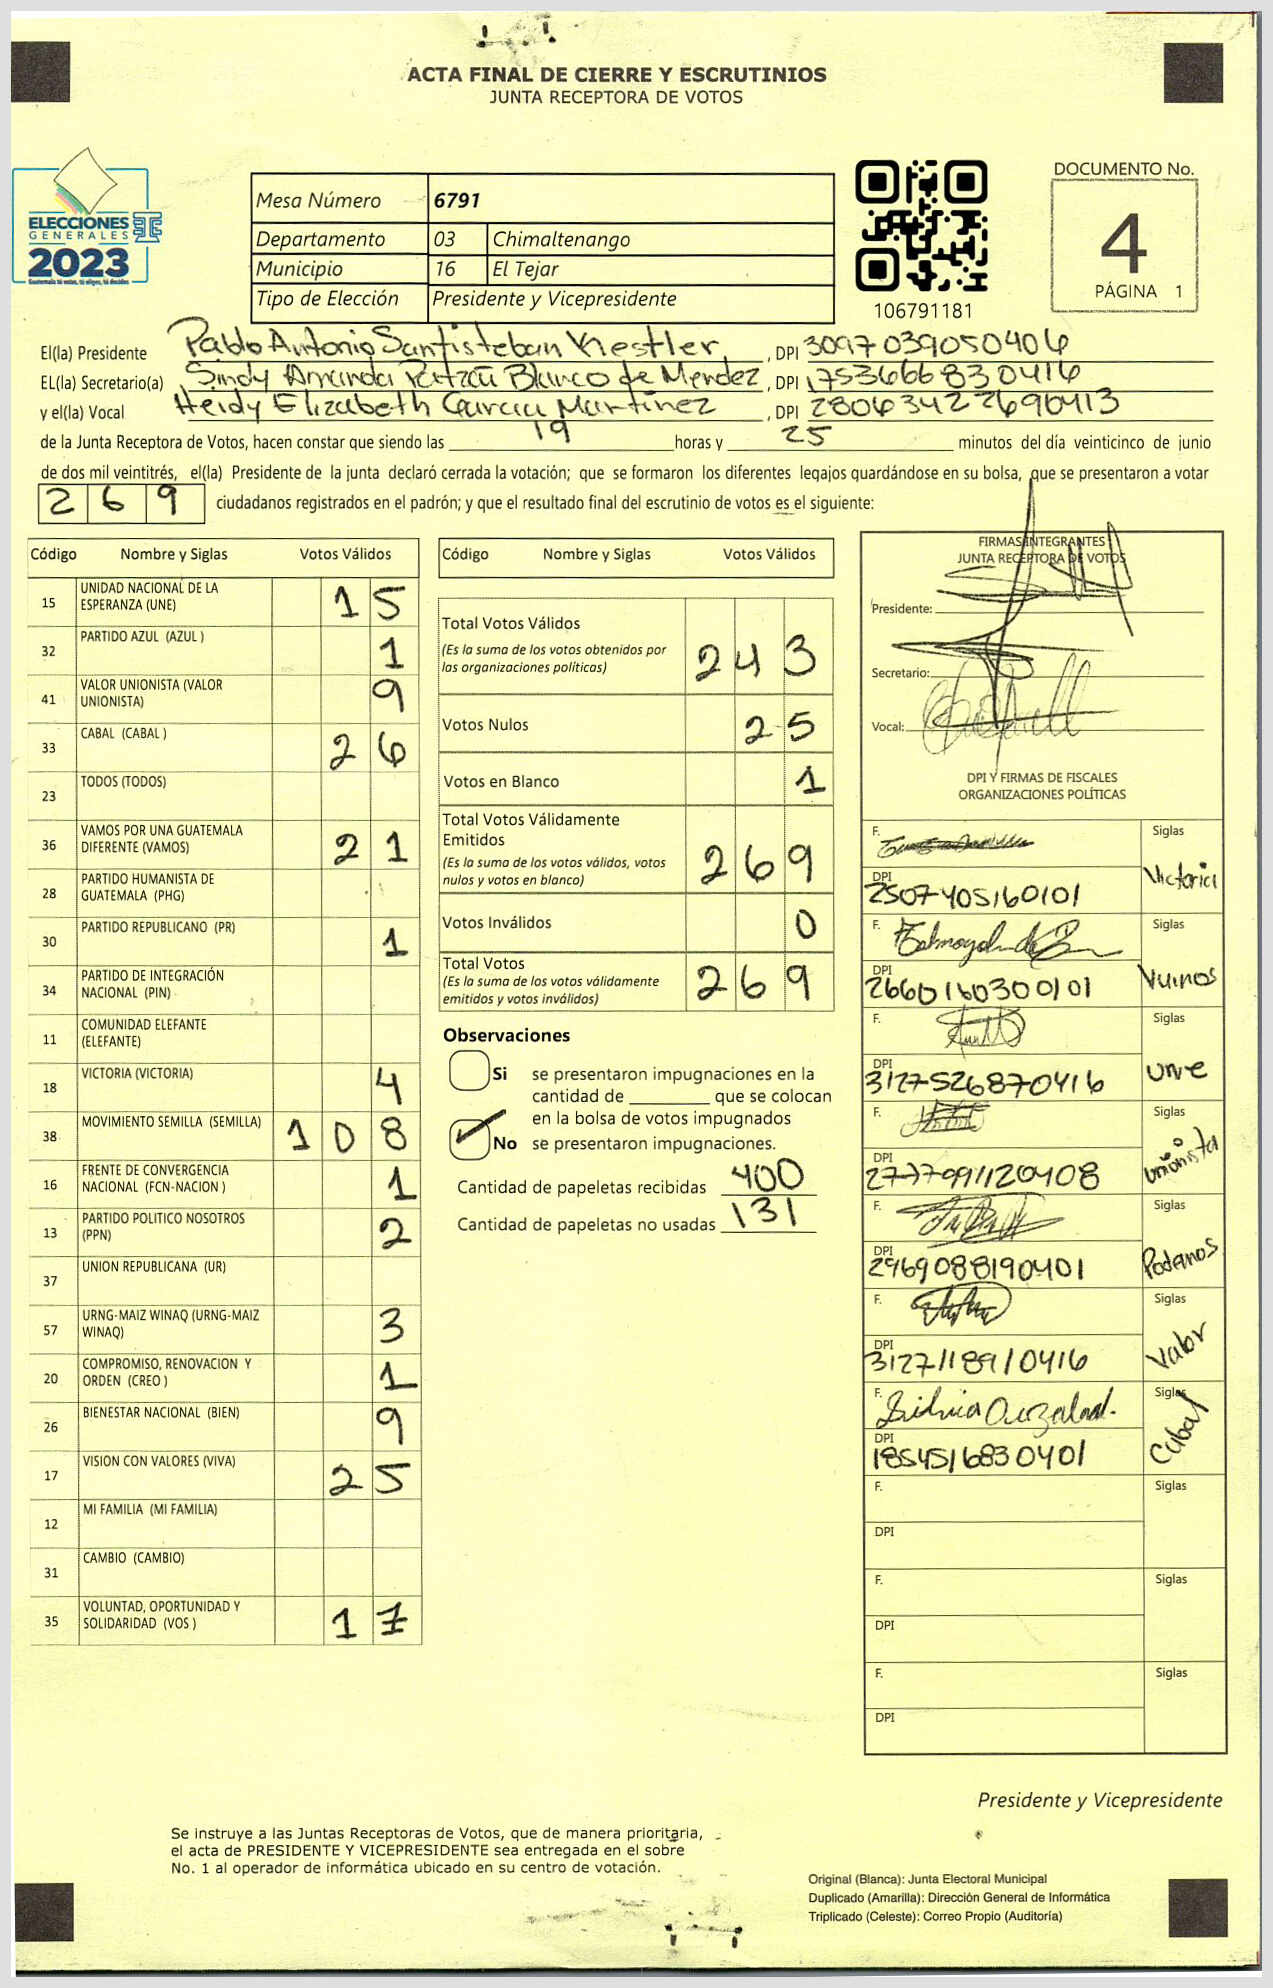 ACTA FINAL DE CIERRE Y ESCRUTINIOS
JUNTA RECEPTORA DE VOTOS
ELECCIONES
GENERALES
2023
Mesa Número 6791
Departamento 03 Chimaltenango
Municipio 16 El Tejar
Tipo de Elección Presidente y Vicepresidente
106791181
DOCUMENTO No.
4
PÁGINA 1
El(la) Presidente Pablo Antonio Santisteban Kestler, DPI 3097039050406
EL(la) Secretario(a) Sindy Amanda Blanco de Mendez, DPI 1753666830416
y el(la) Vocal Heidy Elizabeth Garcia Martinez, DPI 2806342269 0413
de la Junta Receptora de Votos, hacen constar que siendo las 19 horas y 25 minutos del día veinticinco de junio
de dos mil veintitrés, el(la) Presidente de la junta declaró cerrada la votación; que se formaron los diferentes legajos quardándose en su bolsa, que se presentaron a votar
269 ciudadanos registrados en el padrón; y que el resultado final del escrutinio de votos es el siguiente:
Código Nombre y Siglas Votos Válidos
15 UNIDAD NACIONAL DE LA ESPERANZA (UNE) 15
32 PARTIDO AZUL (AZUL ) 1
41 VALOR UNIONISTA (VALOR UNIONISTA) 9
33 CABAL (CABAL ) 26
23 TODOS (TODOS)
36 VAMOS POR UNA GUATEMALA DIFERENTE (VAMOS) 21
28 PARTIDO HUMANISTA DE GUATEMALA (PHG)
30 PARTIDO REPUBLICANO (PR) 1
34 PARTIDO DE INTEGRACIÓN NACIONAL (PIN)
11 COMUNIDAD ELEFANTE (ELEFANTE)
18 VICTORIA (VICTORIA) 4
38 MOVIMIENTO SEMILLA (SEMILLA) 108
16 FRENTE DE CONVERGENCIA NACIONAL (FCN-NACION ) 1
13 PARTIDO POLITICO NOSOTROS (PPN) 2
37 UNION REPUBLICANA (UR)
57 URNG-MAIZ WINAQ (URNG-MAIZ WINAQ) 3
20 COMPROMISO, RENOVACION Y ORDEN (CREO ) 1
26 BIENESTAR NACIONAL (BIEN) 9
17 VISION CON VALORES (VIVA) 25
12 MI FAMILIA (MI FAMILIA)
31 CAMBIO (CAMBIO)
35 VOLUNTAD, OPORTUNIDAD Y SOLIDARIDAD (VOS ) 17
Código Nombre y Siglas Votos Válidos
Total Votos Válidos 243
(Es la suma de los votos obtenidos por
las organizaciones políticas)
Votos Nulos 25
Votos en Blanco 1
Total Votos Válidamente
Emitidos 269
(Es la suma de los votos válidos, votos
nulos y votos en blanco)
Votos Inválidos 0
Total Votos 269
(Es la suma de los votos válidamente
emitidos y votos inválidos)
Observaciones
Si se presentaron impugnaciones en la
cantidad de ________ que se colocan
en la bolsa de votos impugnados
No se presentaron impugnaciones.
Cantidad de papeletas recibidas 400
Cantidad de papeletas no usadas 131
FIRMAS INTEGRANTES
JUNTA RECEPTORA DE VOTOS
Presidente:
Secretario:
Vocal:
DPI Y FIRMAS DE FISCALES
ORGANIZACIONES POLÍTICAS
F. Siglas
DPI 2507405160101 Victoria
F. Siglas
DPI 2660160300101 Vamos
F. Siglas
DPI 3127526870416 UNE
F. Siglas
DPI 2777091120408 Unionista
F. Siglas
DPI 2969088190401 Podemos
F. Siglas
DPI 3127118910416 Valor
F. Siglas
DPI 1854516830401 Cabal
F. Siglas
DPI
F. Siglas
DPI
F. Siglas
DPI
Presidente y Vicepresidente
Se instruye a las Juntas Receptoras de Votos, que de manera prioritaria,
el acta de PRESIDENTE Y VICEPRESIDENTE sea entregada en el sobre
No. 1 al operador de informática ubicado en su centro de votación.
Original (Blanca): Junta Electoral Municipal
Duplicado (Amarilla): Dirección General de Informática
Triplicado (Celeste): Correo Propio (Auditoría)